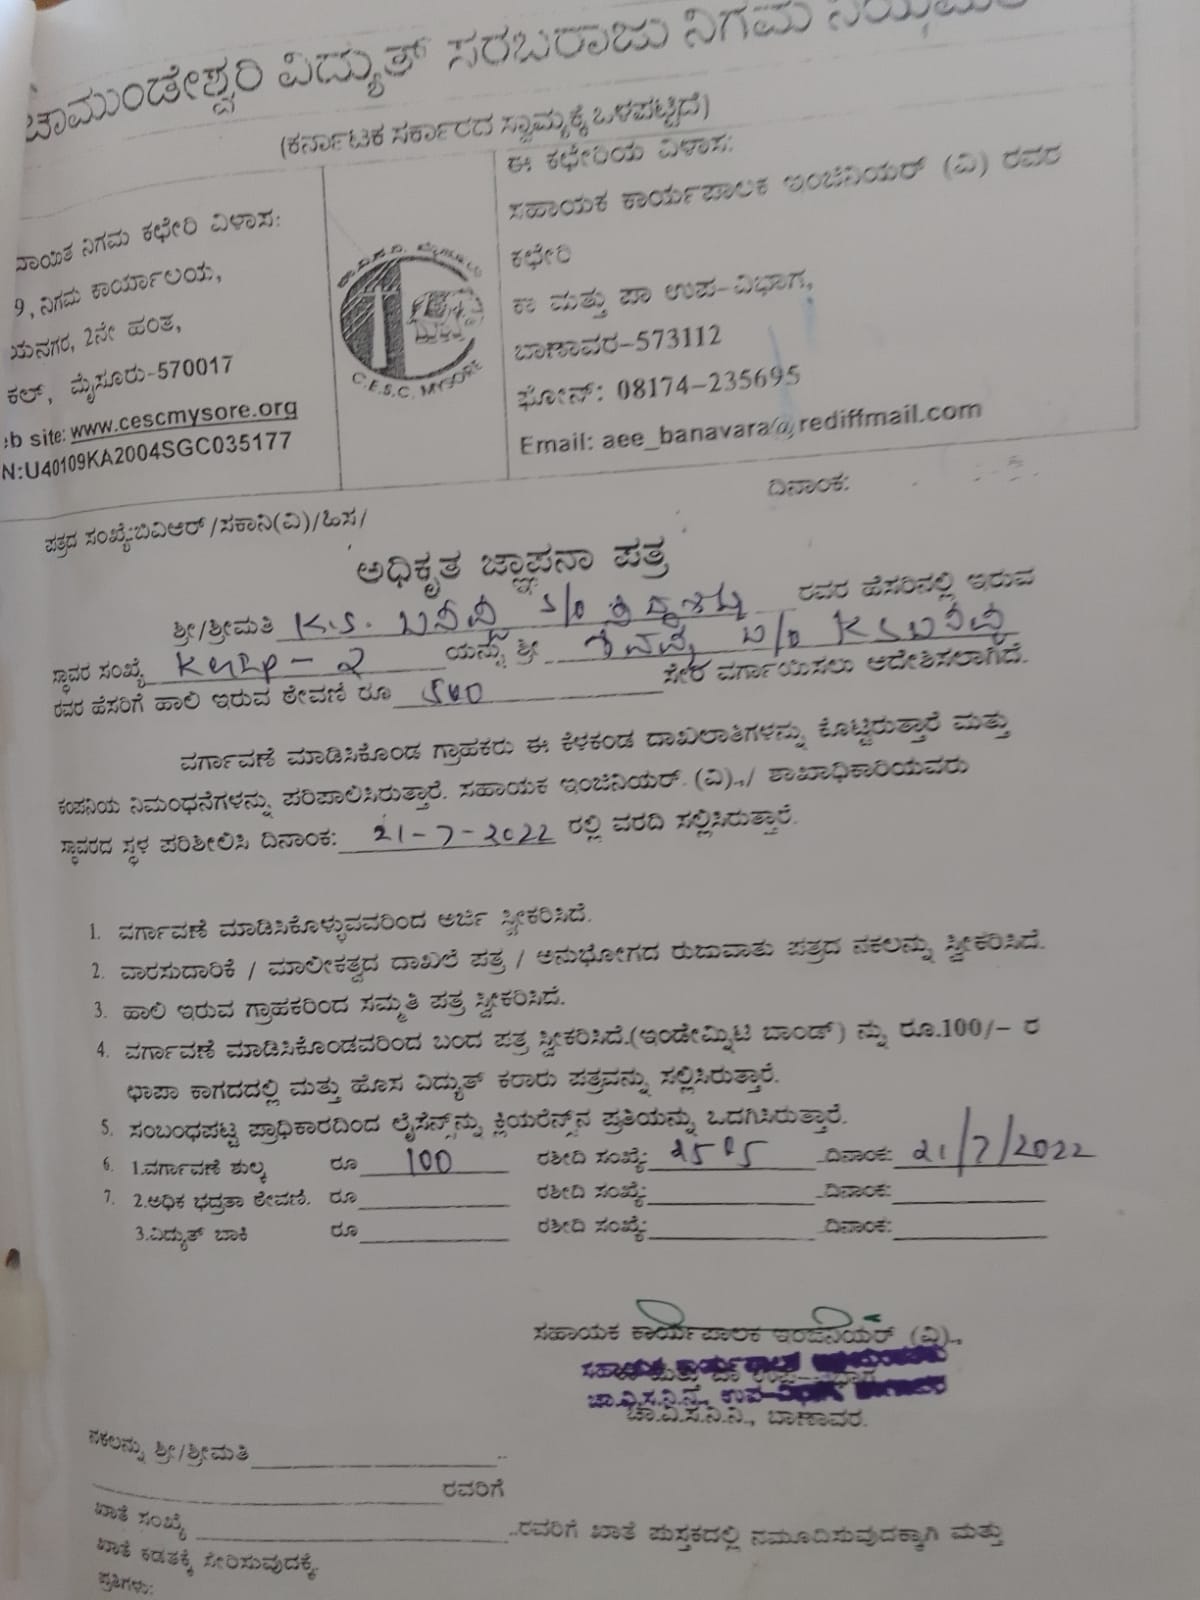 ಚಾಮುಂಡೇಶ್ವರಿ ವಿದ್ಯುತ್ ಸರಬರಾಜು ನಿಗಮ
(ಕರ್ನಾಟಕ ಸರ್ಕಾರದ ಸ್ವಾಮ್ಯಕ್ಕೆ ಒಳಪಟ್ಟಿದೆ)
ನಿಗಮ ಕಛೇರಿ ವಿಳಾಸ:
9, ನಿಗಮ ಕಾರ್ಯಾಲಯ,
ಯನಗರ, 2ನೇ ಹಂತ,
ಕಲ್, ಮೈಸೂರು-570017
eb site: www.cescmysore.org
N:U40109KA2004SGC035177
C.E.S.C. MYSORE
ಈ ಕಛೇರಿಯ ವಿಳಾಸ:
ಸಹಾಯಕ ಕಾರ್ಯಪಾಲಕ ಇಂಜಿನಿಯರ್ (ವಿ) ರವರ
ಕಛೇರಿ
ಕಾ ಮತ್ತು ಪಾ ಉಪ-ವಿಭಾಗ,
ಬಾಣಾವರ-573112
ಫೋನ್: 08174-235695
Email: aee_banavara@rediffmail.com
ದಿನಾಂಕ:
ಪತ್ರದ ಸಂಖ್ಯೆ:ಬಿವಿಆರ್/ಸಕಾನಿ(ವಿ)/ಹಿಸ/
ಅಧಿಕೃತ ಜ್ಞಾಪನಾ ಪತ್ರ
ಶ್ರೀ/ಶ್ರೀಮತಿ K.S. S/o ರವರ ಹೆಸರಿನಲ್ಲಿ ಇರುವ
ಸ್ಥಾವರ ಸಂಖ್ಯೆ ಯನ್ನು ಶ್ರೀ
ರವರ ಹೆಸರಿಗೆ ಹಾಲಿ ಇರುವ ಠೇವಣಿ ರೂ ಸೇರಿ ವರ್ಗಾಯಿಸಲು ಆದೇಶಿಸಲಾಗಿದೆ.
ವರ್ಗಾವಣೆ ಮಾಡಿಸಿಕೊಂಡ ಗ್ರಾಹಕರು ಈ ಕೆಳಕಂಡ ದಾಖಲಾತಿಗಳನ್ನು ಕೊಟ್ಟಿರುತ್ತಾರೆ ಮತ್ತು
ಕಂಪನಿಯ ನಿಮಂಧನೆಗಳನ್ನು ಪರಿಪಾಲಿಸಿರುತ್ತಾರೆ. ಸಹಾಯಕ ಇಂಜಿನಿಯರ್. (ವಿ).,/ ಶಾಖಾಧಿಕಾರಿಯವರು
ಸ್ಥಾವರದ ಸ್ಥಳ ಪರಿಶೀಲಿಸಿ ದಿನಾಂಕ: 21-7-2022 ರಲ್ಲಿ ವರದಿ ಸಲ್ಲಿಸಿರುತ್ತಾರೆ.
1. ವರ್ಗಾವಣೆ ಮಾಡಿಸಿಕೊಳ್ಳುವವರಿಂದ ಅರ್ಜಿ ಸ್ವೀಕರಿಸಿದೆ.
2. ವಾರಸುದಾರಿಕೆ / ಮಾಲೀಕತ್ವದ ದಾಖಲೆ ಪತ್ರ / ಅನುಭೋಗದ ರುಜುವಾತು ಪತ್ರದ ನಕಲನ್ನು ಸ್ವೀಕರಿಸಿದೆ.
3. ಹಾಲಿ ಇರುವ ಗ್ರಾಹಕರಿಂದ ಸಮ್ಮತಿ ಪತ್ರ ಸ್ವೀಕರಿಸಿದೆ.
4. ವರ್ಗಾವಣೆ ಮಾಡಿಸಿಕೊಂಡವರಿಂದ ಬಂದ ಪತ್ರ ಸ್ವೀಕರಿಸಿದೆ.(ಇಂಡೇಮ್ನಿಟಿ ಬಾಂಡ್) ನ್ನು ರೂ.100/- ರ
ಛಾಪಾ ಕಾಗದದಲ್ಲಿ ಮತ್ತು ಹೊಸ ವಿದ್ಯುತ್ ಕರಾರು ಪತ್ರವನ್ನು ಸಲ್ಲಿಸಿರುತ್ತಾರೆ.
5. ಸಂಬಂಧಪಟ್ಟ ಪ್ರಾಧಿಕಾರದಿಂದ ಲೈಸೆನ್ಸ್‌ನ್ನು ಕ್ಲಿಯರೆನ್ಸ್‌ನ ಪ್ರತಿಯನ್ನು ಒದಗಿಸಿರುತ್ತಾರೆ.
6. 1.ವರ್ಗಾವಣೆ ಶುಲ್ಕ ರೂ 100 ರಶೀದಿ ಸಂಖ್ಯೆ: ದಿನಾಂಕ: 21/7/2022
7. 2.ಅಧಿಕ ಭದ್ರತಾ ಠೇವಣಿ. ರೂ ರಶೀದಿ ಸಂಖ್ಯೆ: ದಿನಾಂಕ:
3.ವಿದ್ಯುತ್ ಬಾಕಿ ರೂ ರಶೀದಿ ಸಂಖ್ಯೆ: ದಿನಾಂಕ:
ಸಹಾಯಕ ಕಾರ್ಯಪಾಲಕ ಇಂಜಿನಿಯರ್ (ವಿ).,
ಚಾ.ವಿ.ಸ.ನಿ.ನಿ., ಬಾಣಾವರ.
ನಕಲನ್ನು ಶ್ರೀ/ಶ್ರೀಮತಿ
ರವರಿಗೆ
ಖಾತೆ ಸಂಖ್ಯೆ ..ರವರಿಗೆ ಖಾತೆ ಪುಸ್ತಕದಲ್ಲಿ ನಮೂದಿಸುವುದಕ್ಕಾಗಿ ಮತ್ತು
ಖಾತೆ ಕಡತಕ್ಕೆ ಸೇರಿಸುವುದಕ್ಕೆ.
ಪ್ರತಿಗಳು: